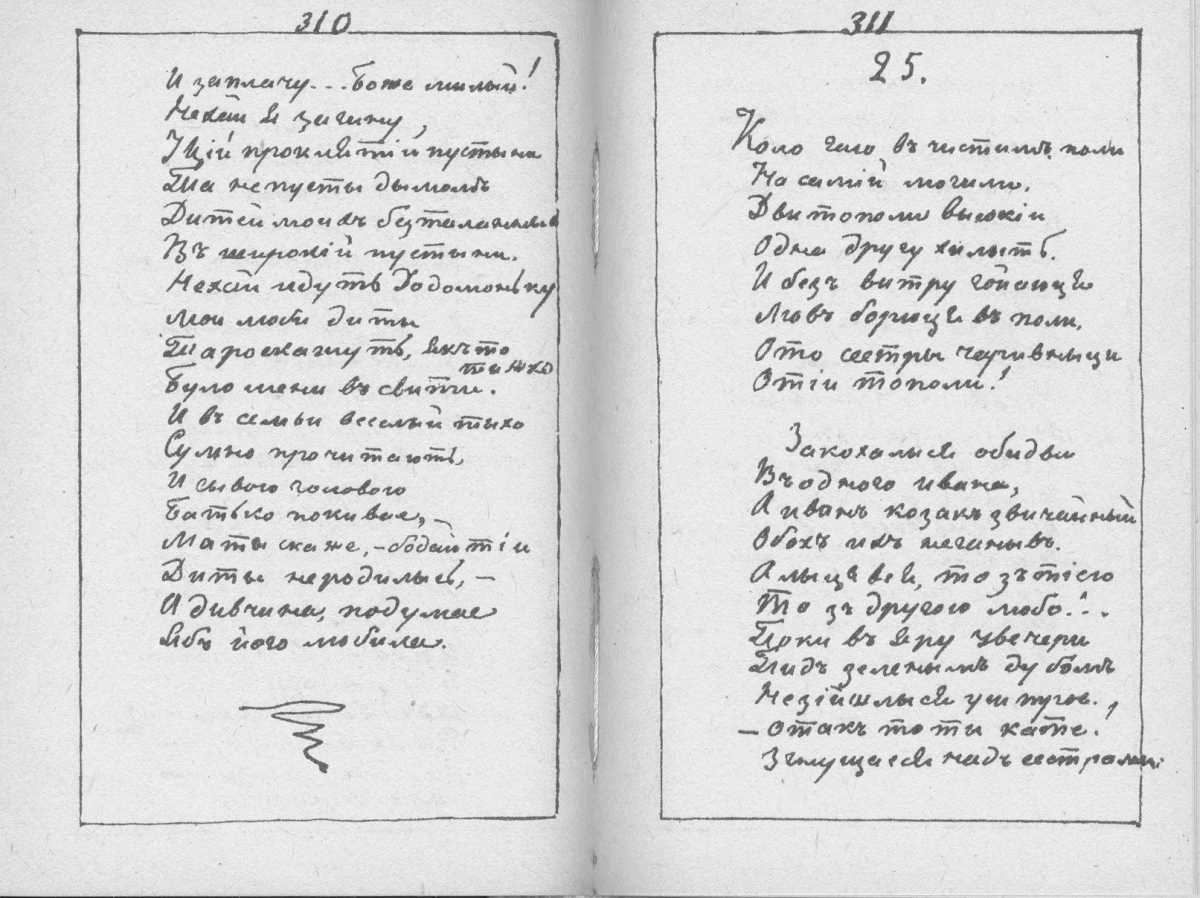 310
И заплачу... Боже милый!
Нехай я загину,
У цій проклятій пустыни
Та непусты дымомъ
Дитей моихъ безталанныхъ
Въ широкій пустыни.
Нехай идуть додомоньку
Мои люби диты
Та роскажуть, якъ то
тяжко
Було мени въ свити.
И въ семьи веселый тыхо
Сумно прочитають,
И сывою головою
Батько покивае, —
Маты скаже, — бодай тіи
Диты неродились, —
А дивчина, подумае
Ябъ його любила.
311
25.
Коло гаю въ чистимъ поли
На самій могили.
Дви тополи высокіи
Одна другу хилыть.
И безъ витру гойдаюця
Мовъ борюця въ поли.
Ото сестры чаривныци
Отіи тополи!
Закохалыся обидви
Въ одного ивана,
А иванъ козакъ звичайный
Обохъ ихъ неганывъ.
А лыцявся, то зътією
То зъ другою любо...
Поки въ яру увечери
Пидъ зеленымъ дубомъ
Незійшлыся уси трое.
— Отакъ то ти кате!
Знущаеся надъ сестрами